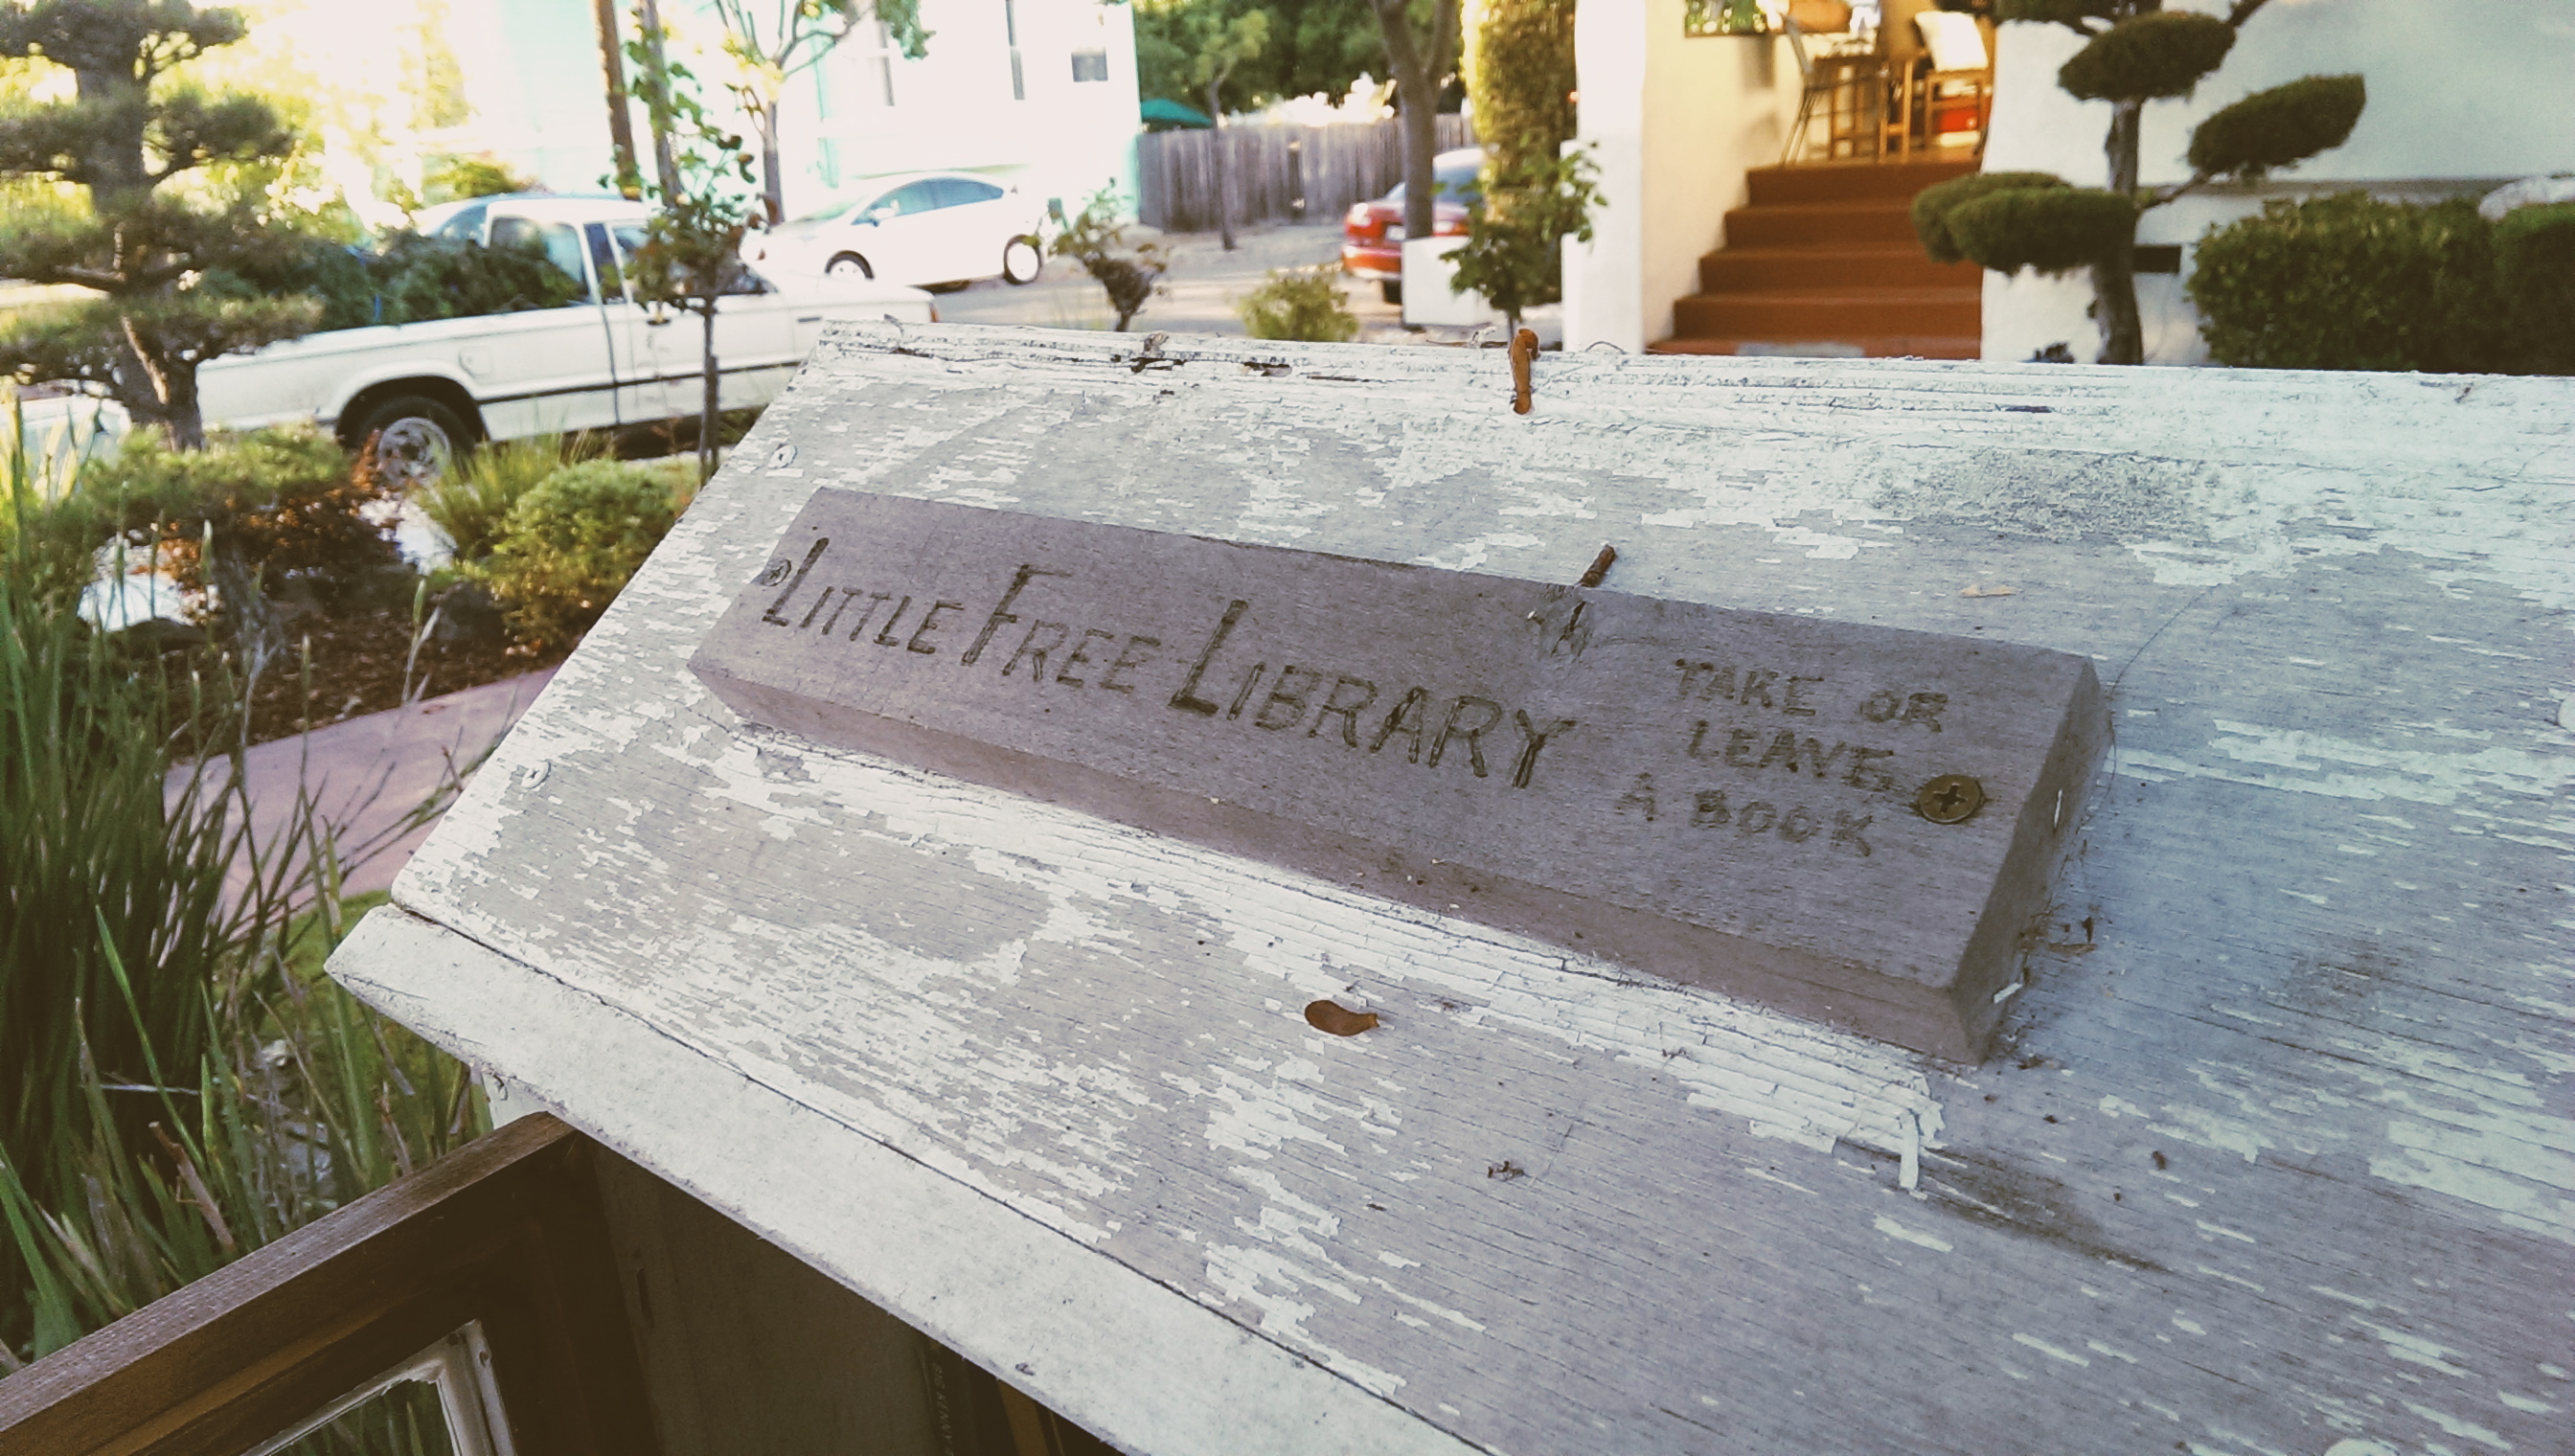 LITTLE FREE LIBRARY
TAKE OR
LEAVE
A BOOK